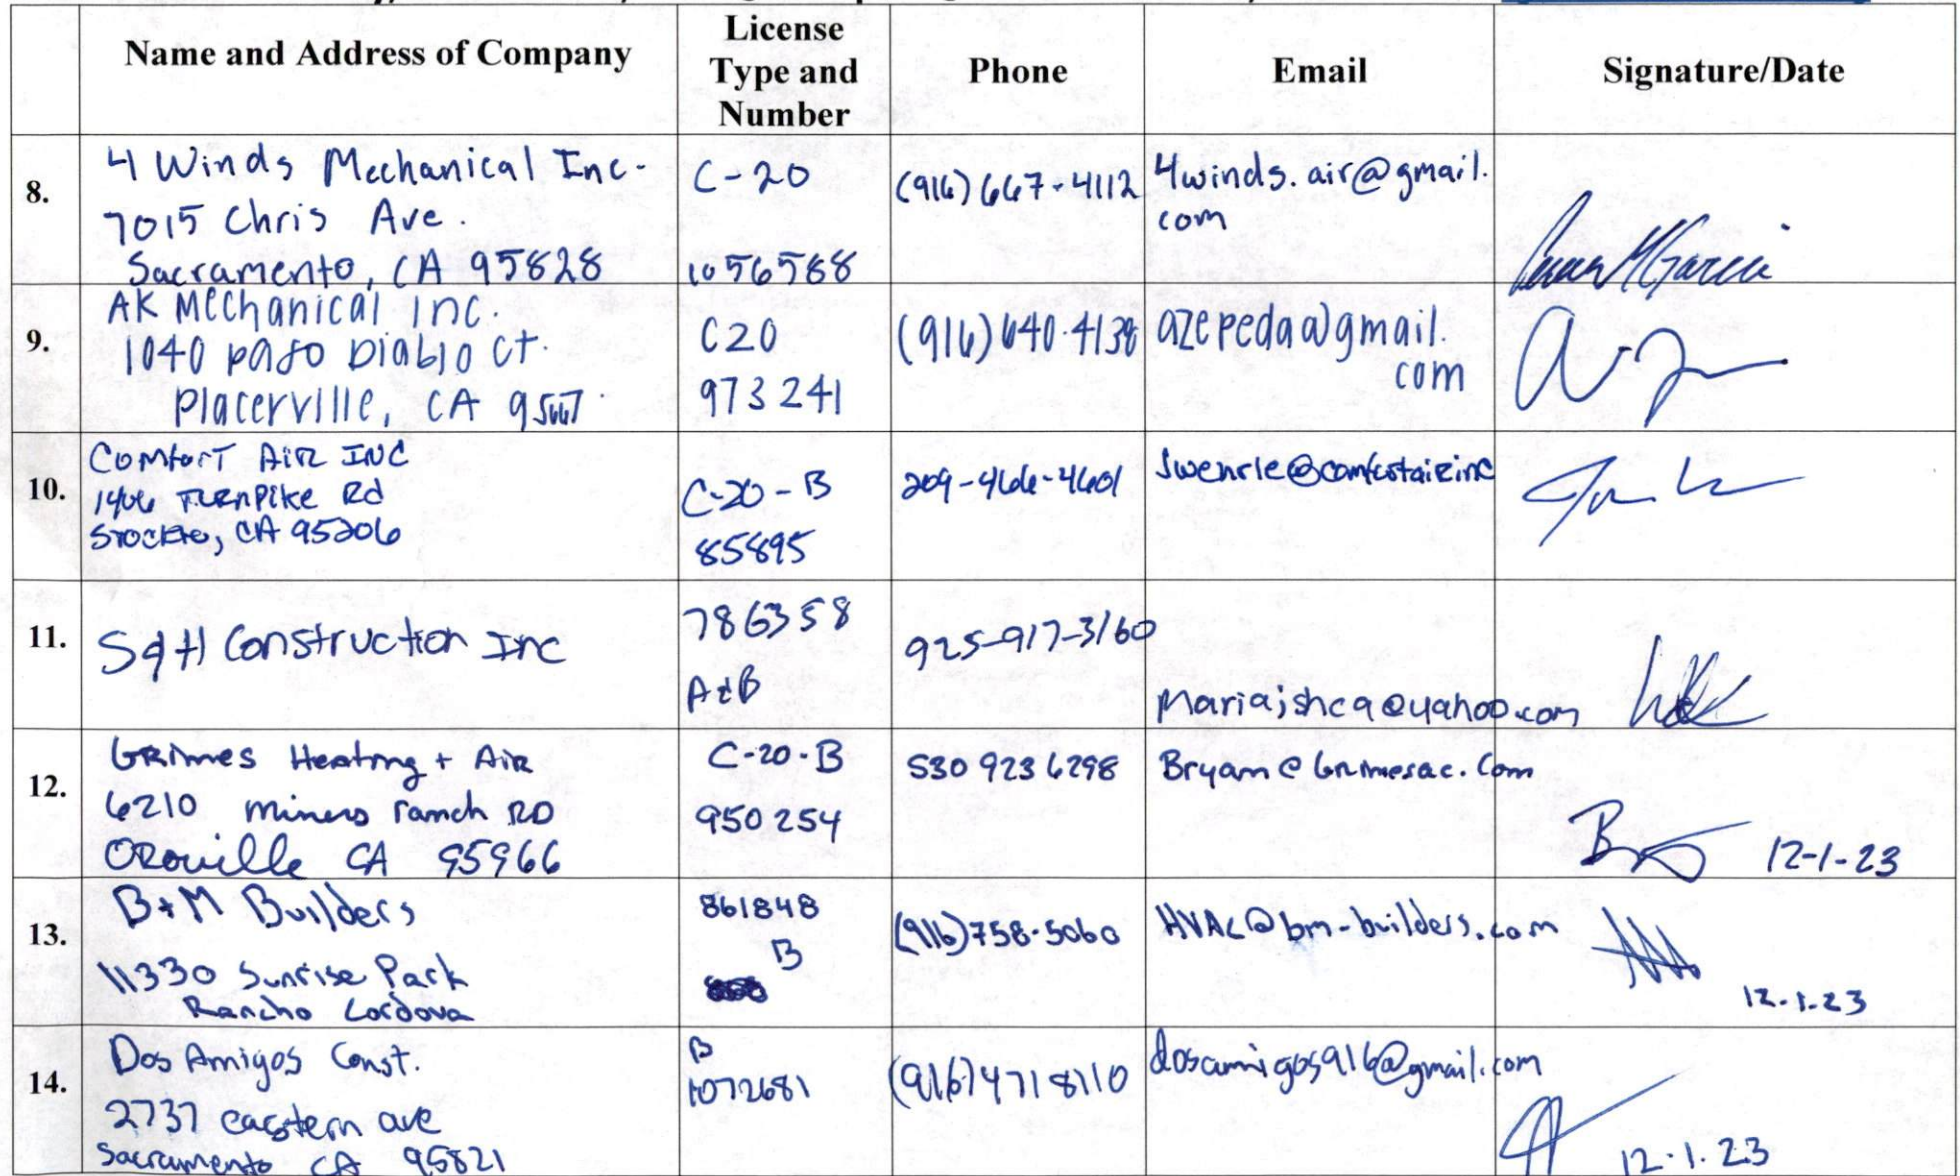 Name and Address of Company
License Type and Number
Phone
Email
Signature/Date
8.
4 Winds Mechanical Inc.
7015 Chris Ave.
Sacramento, CA 95828
C-20
1056588
(916) 667-4112
4winds.air@gmail.
com
9.
AK Mechanical Inc.
1040 paso Diablo ct.
Placerville, CA 95667
C20
973241
(916) 640-4138
azepeda@gmail.
com
10.
Comfort Air INC
1406 Turnpike Rd
CA 95206
C-20-B
85895
209-466-4601
11.
S&H Construction Inc
786358
A&B
925-917-3160
Mariajshca@yahoo.com
12.
Grimes Heating + Air
6210 miners ranch RD
Oroville CA 95966
C-20-B
950254
530 923 6298
Bryan@Grimesac.com
12-1-23
13.
B+M Builders
11330 Sunrise Park
Rancho Cordova
861848
B
(916) 758-5060
HVAC@bm-builders.com
12.1.23
14.
Dos Amigos Const.
2737 eastern ave
Sacramento CA 95821
B
1072681
(916) 471 8110
dosamigos916@gmail.com
12.1.23